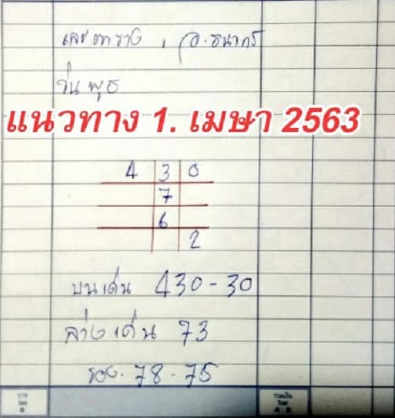 เลขตาราง , อ.ธนากร
วันพุธ
แนวทาง 1. เมษา 2563
4 3 0
7
6
2
บนเด่น 430-30
ล่างเด่น 73
รอง. 78-75